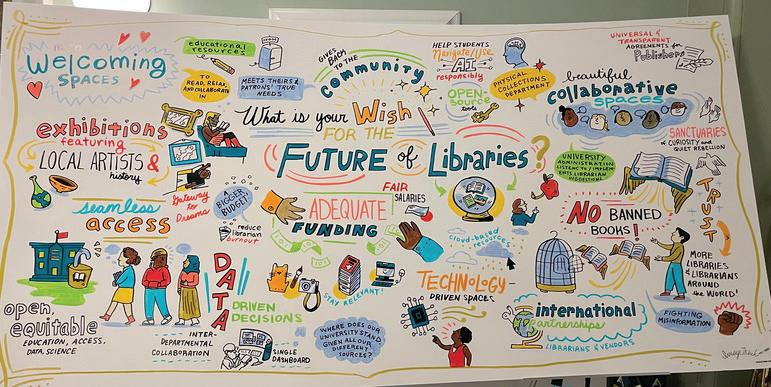 Welcoming
SPACES
educational
resources
TO
READ, RELAX,
AND COLLABORATE
IN
MEETS THEIRS &
PATRONS' TRUE
NEEDS
GIVES
BACK
TO THE
Community
HELP STUDENTS
Navigate/Use
AI
responsibly
OPEN-
SOURCE
tools
PHYSICAL
COLLECTIONS
DEPARTMENT
UNIVERSAL &
TRANSPARENT
AGREEMENTS for
Publishers
beautiful
collaborative
spaces
What is your Wish
FOR THE
FUTURE of Libraries?
exhibitions
featuring
LOCAL ARTISTS &
history
Gateway
to
Dreams
seamless
access
BIGGER
BUDGET
reduce
librarian
burnout
FAIR
SALARIES
ADEQUATE
FUNDING
cloud-based
resources
UNIVERSITY
ADMINISTRATION
LISTENS TO/IMPLEM-
ENTS LIBRARIAN
SUGGESTIONS
SANCTUARIES
of CURIOSITY and
QUIET REBELLION
TRUST
NO BANNED
BOOKS!
MORE
LIBRARIES
& LIBRARIANS
AROUND
the WORLD!
open,
equitable
EDUCATION, ACCESS,
DATA SCIENCE
INTER-
DEPARTMENTAL
COLLABORATION
DATA
DRIVEN
DECISIONS
SINGLE
DASHBOARD
STAY RELEVANT!
WHERE DOES OUR
UNIVERSITY STAND
GIVEN ALL OUR
DIFFERENT
SOURCES?
TECHNOLOGY-
DRIVEN SPACES
international
partnerships
LIBRARIANS & VENDORS
FIGHTING
MISINFORMATION